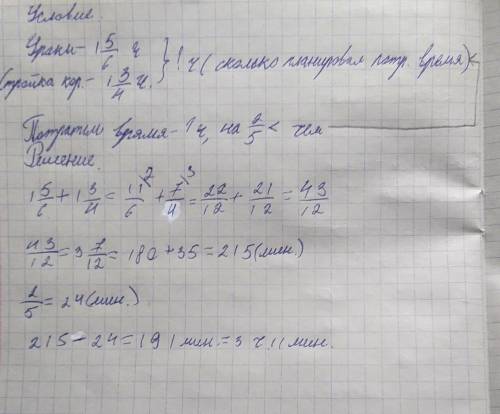 Условие.
Уроки - 1 5/6 ч } ? ч ( сколько планировал потр. время)
Стройка кор. - 1 3/4 ч.
Потратил время - ? ч, на 2/5 < чем
Решение.
1 5/6 + 1 3/4 = 11/6 \2 + 7/4 \3 = 22/12 + 21/12 = 43/12
43/12 = 3 7/12 = 180 + 35 = 215 (мин.)
2/5 = 24 (мин.)
215 - 24 = 191 мин. = 3 ч. 11 мин.